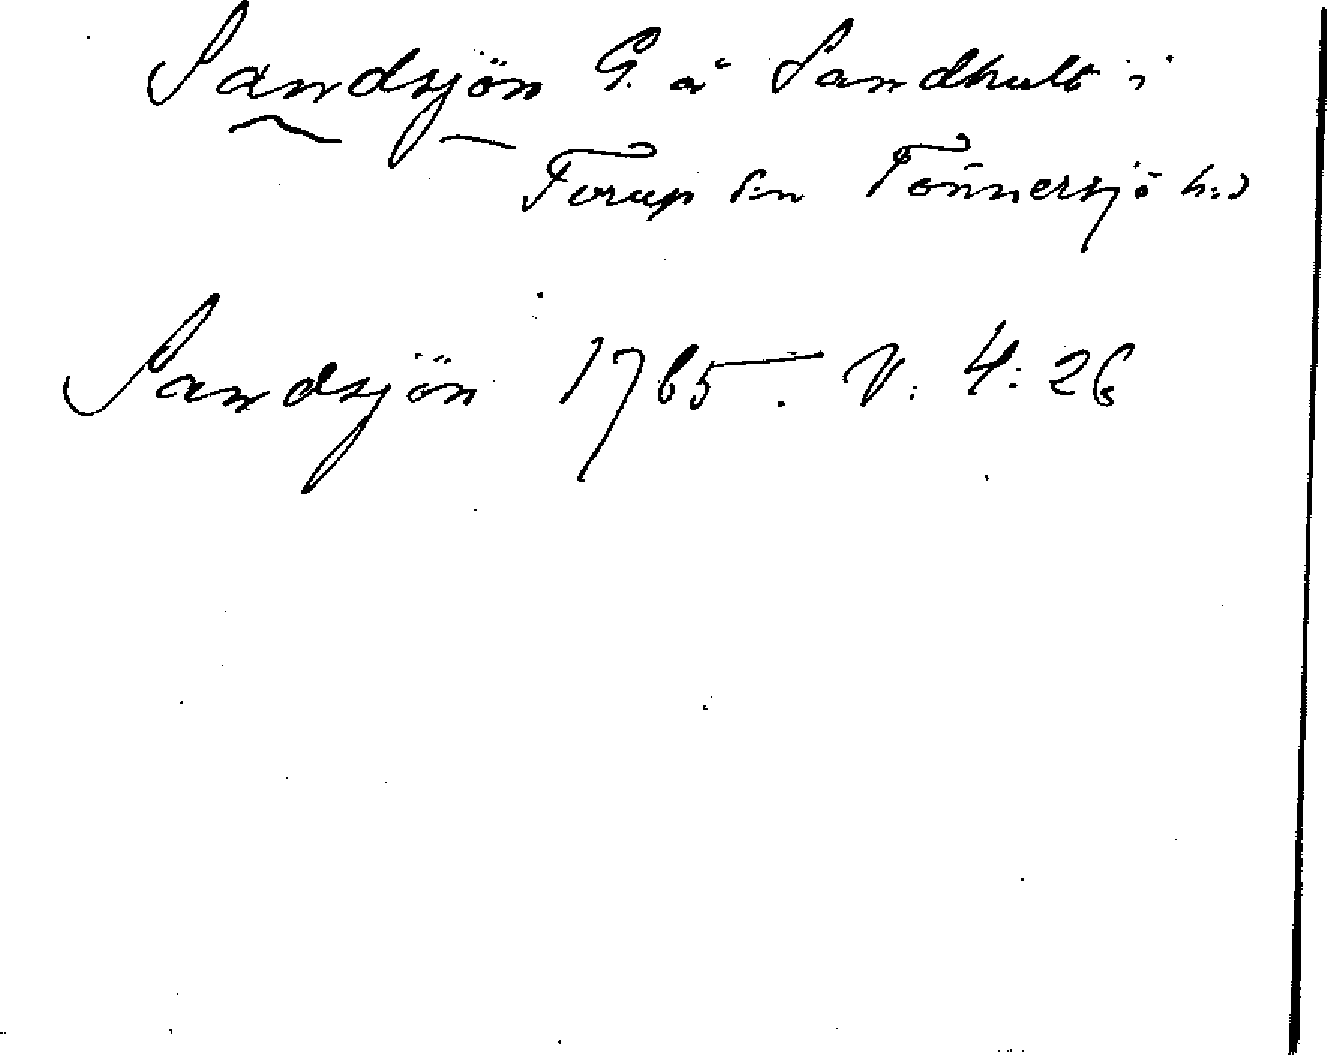 Sandsjön G. å Sandhult i
Torup s:n Tönnersjö h:d
Sandsjön 1765. V. 4: 26